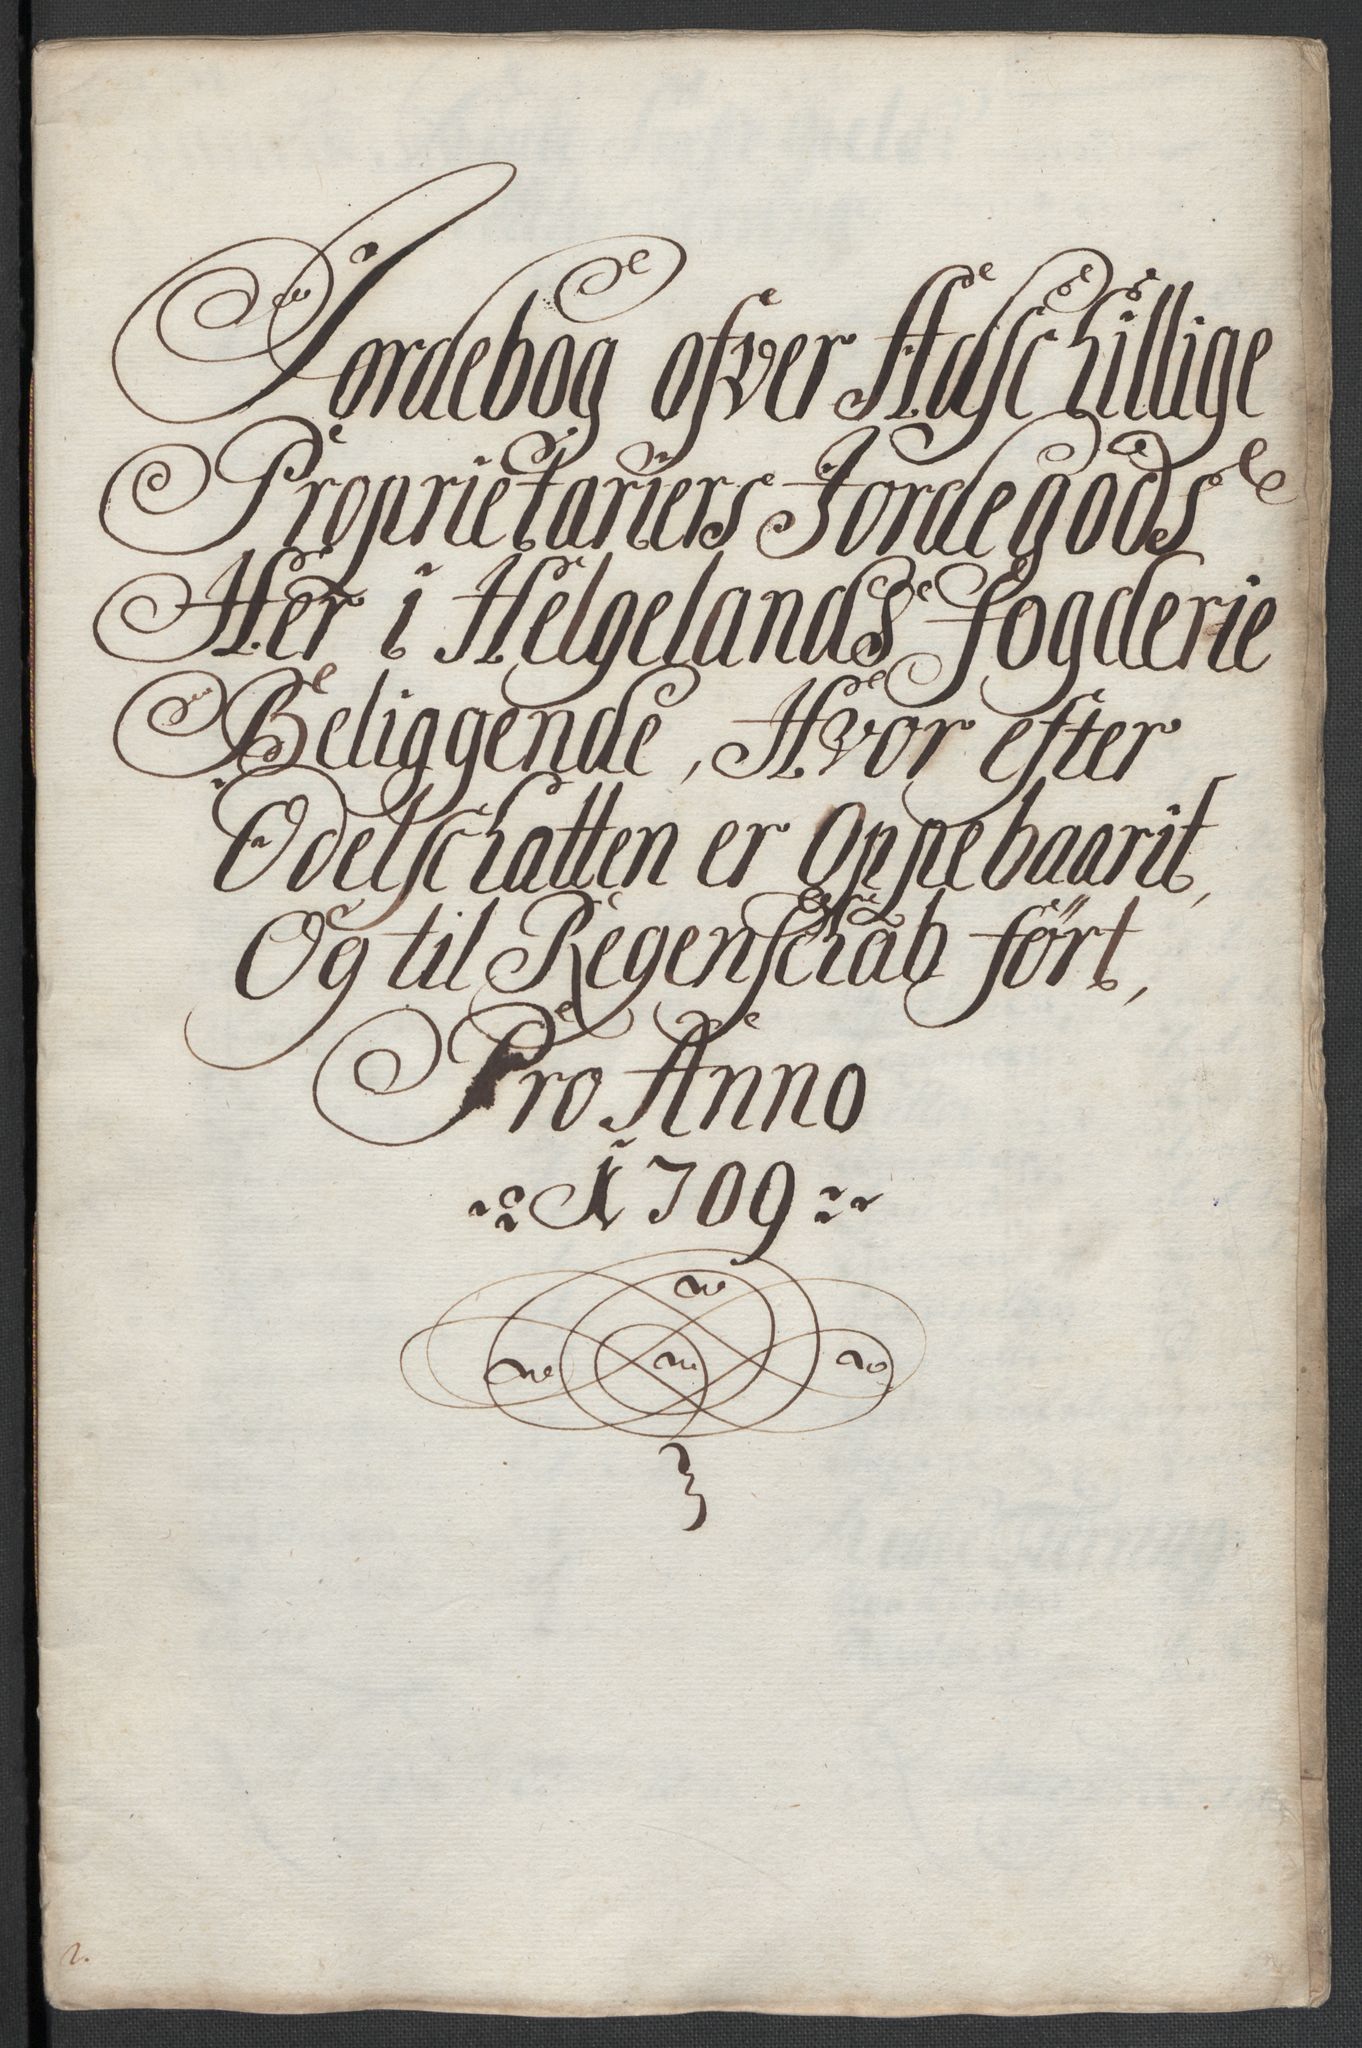 Jordebog ofver Adschillige
Proprietariers Jordegods
Her i Helgelands fogderie
Beliggende, Hvor efter
Odelschatten er Oppebaarit,
Og til Regenschab ført,
Pro Anno
1709
2.